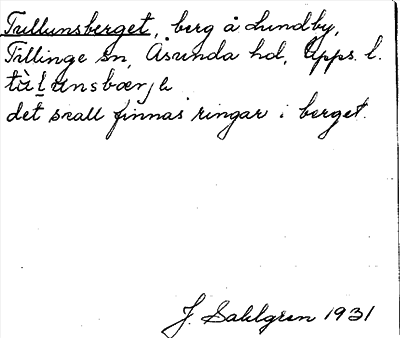 Tullunsberget, berg å Lundby,
Tillinge sn, Åsunda hd, Upps. l.
det skall finnas ringar i berget.
J. Sahlgren 1931